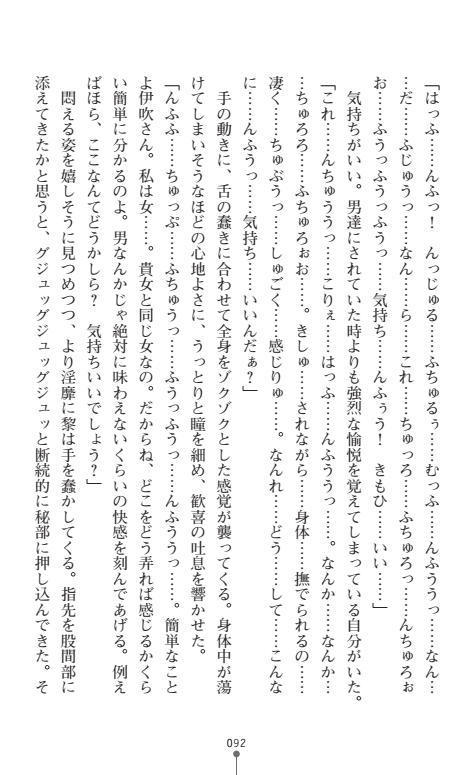 「はっふ……んふっ！　んっじゅる……ふちゅるぅ……むっふ……んふううっ……なん…
…だ……ふじゅうっ……なん……ら……これ……ちゅっろ……ふちゅろっ……んちゅろぉ
お……ふうっふうっふうっ……気持ち……んふぅう！　きもひ……いい……」
　気持ちがいい。男達にされていた時よりも強烈な愉悦を覚えてしまっている自分がいた。
「これ……んちゅううっ……こりぇ……はっふ……んふううっ……。なんか……なんか…
…ちゅろろ……ふちゅろぉお……。きしゅ……されながら……身体……撫でられるの……
凄く……ちゅぷうっ……しゅごく……感じりゅ……。なんれ……どう……して……こんな
に……んふうっ……気持ち……いいんだぁ？」
　手の動きに、舌の蠢きに合わせて全身をゾクゾクとした感覚が襲ってくる。身体中が蕩
けてしまいそうなほどの心地よさに、うっとりと瞳を細め、歓喜の吐息を響かせた。
「んふふ……ちゅっぷ……ふちゅうっ……ふうっふうっ……んふううっ……。簡単なこと
よ伊吹さん。私は女……。貴女と同じ女なの。だからね、どこをどう弄れば感じるかくら
い簡単に分かるのよ。男なんかじゃ絶対に味わえないくらいの快感を刻んであげる。例え
ばほら、ここなんてどうかしら？　気持ちいいでしょう？」
　悶える姿を嬉しそうに見つめつつ、より淫靡に黎は手を蠢かしてくる。指先を股間部に
添えてきたかと思うと、グジュッグジュッグジュッと断続的に秘部に押し込んできた。そ
092